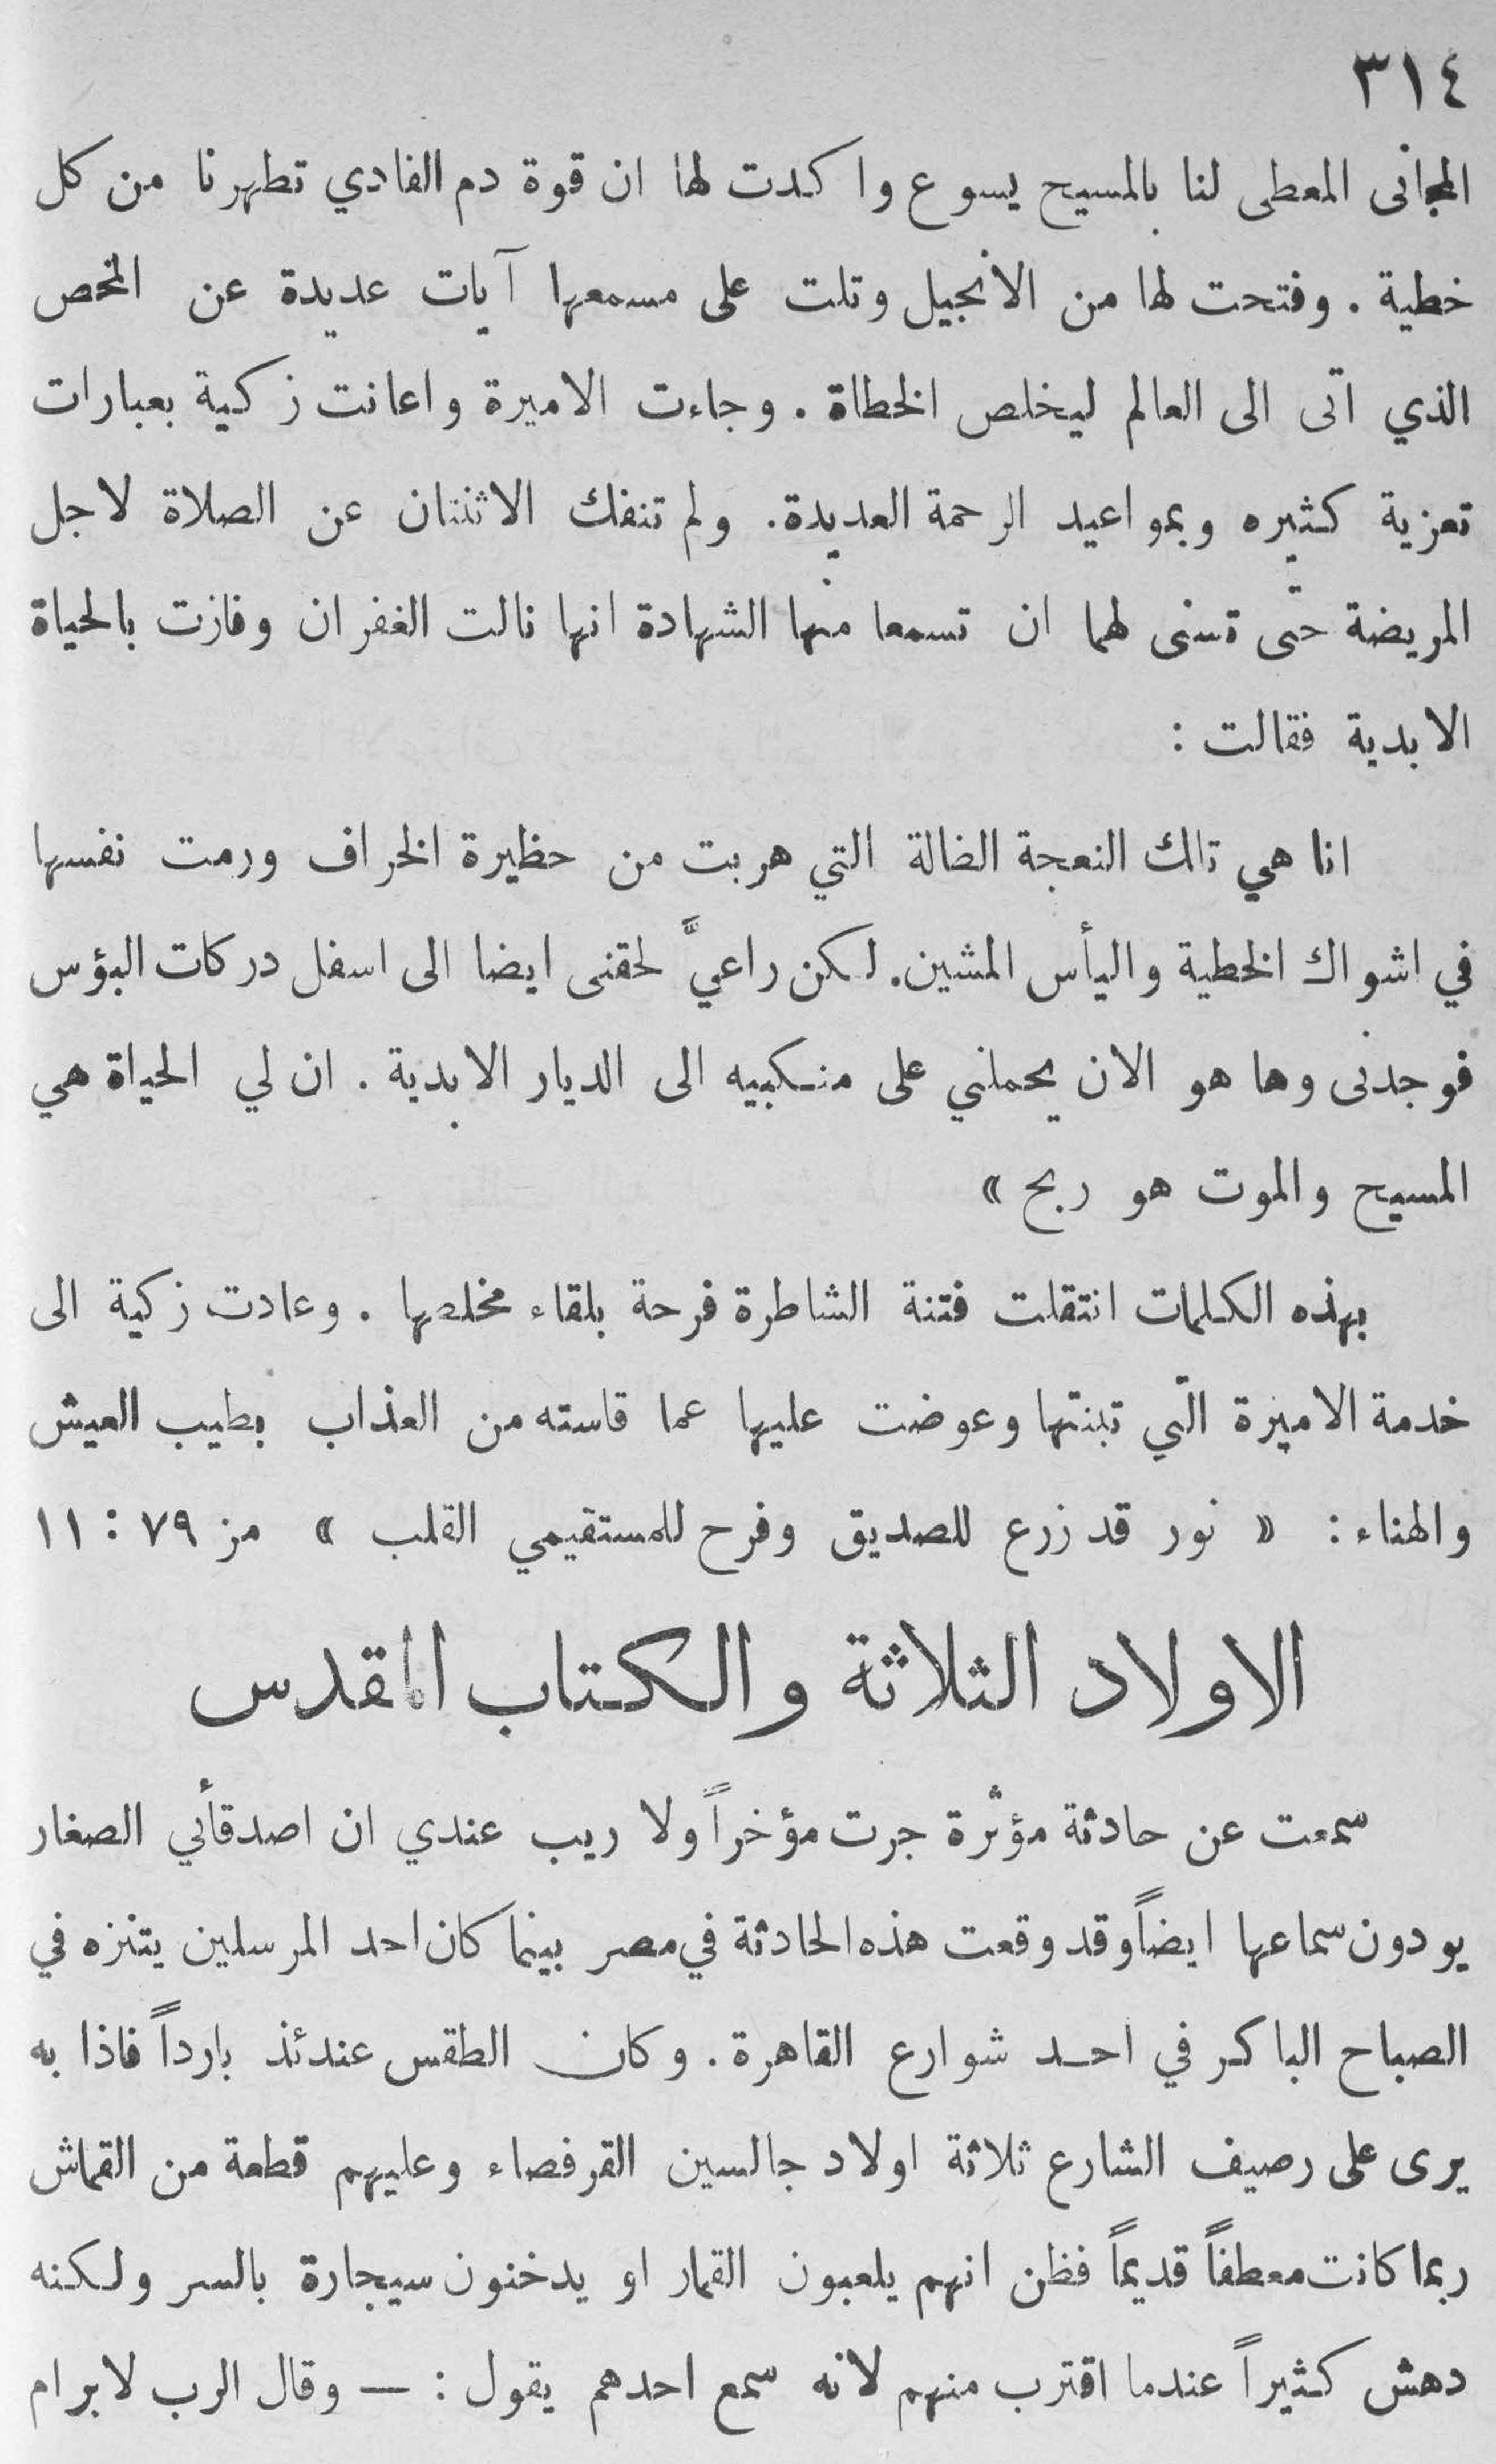 ٣١٤
المجانى المعطى لنا بالمسيح يسوع واكدت لها ان قوة دم الفادي تطهرنا من كل
خطية . وفتحت لها من الانجيل وتلت على مسمعها آيات عديدة عن المخص
الذي اتى الى العالم ليخلص الخطاة . وجاءت الاميرة واعانت زكية بعبارات
تعزية كثيره وبمواعيد الرحمة العديدة. ولم تنفك الاثنتان عن الصلاة لاجل
المريضة حتى تسنى لهما ان تسمعا منها الشهادة انها نالت الغفران وفازت بالحياة
الابدية فقالت :
انا هي تلك النعجة الضالة التي هربت من حظيرة الخراف ورمت نفسها
في اشواك الخطية واليأس المشين. لكن راعيَّ لحقنى ايضا الى اسفل دركات البؤس
فوجدنى وها هو الان يحملني على منكبيه الى الديار الابدية . ان لي الحياة هي
المسيح والموت هو ربح »
بهذه الكلمات انتقلت فتنة الشاطرة فرحة بلقاء مخلصها . وعادت زكية الى
خدمة الاميرة التي تبنتها وعوضت عليها عما قاسته من العذاب بطيب العيش
والهناء : « نور قد زرع للصديق وفرح للمستقيمي القلب » مز ٧٩ : ١١
الاولاد الثلاثة والكتاب المقدس
سمعت عن حادثة مؤثرة جرت مؤخراً ولا ريب عندي ان اصدقأئي الصغار
يودون سماعها ايضاً وقد وقعت هذه الحادثة في مصر بينما كان احد المرسلين يتنزه في
الصباح الباكر في احد شوارع القاهرة . وكان الطقس عندئذ بارداً فاذا به
يرى على رصيف الشارع ثلاثة اولاد جالسين القرفصاء وعليهم قطعة من القماش
ربما كانت معطفاً قديماً فظن انهم يلعبون القمار او يدخنون سيجارة بالسر ولكنه
دهش كثيراً عندما اقترب منهم لانه سمع احدهم يقول : — وقال الرب لابرام